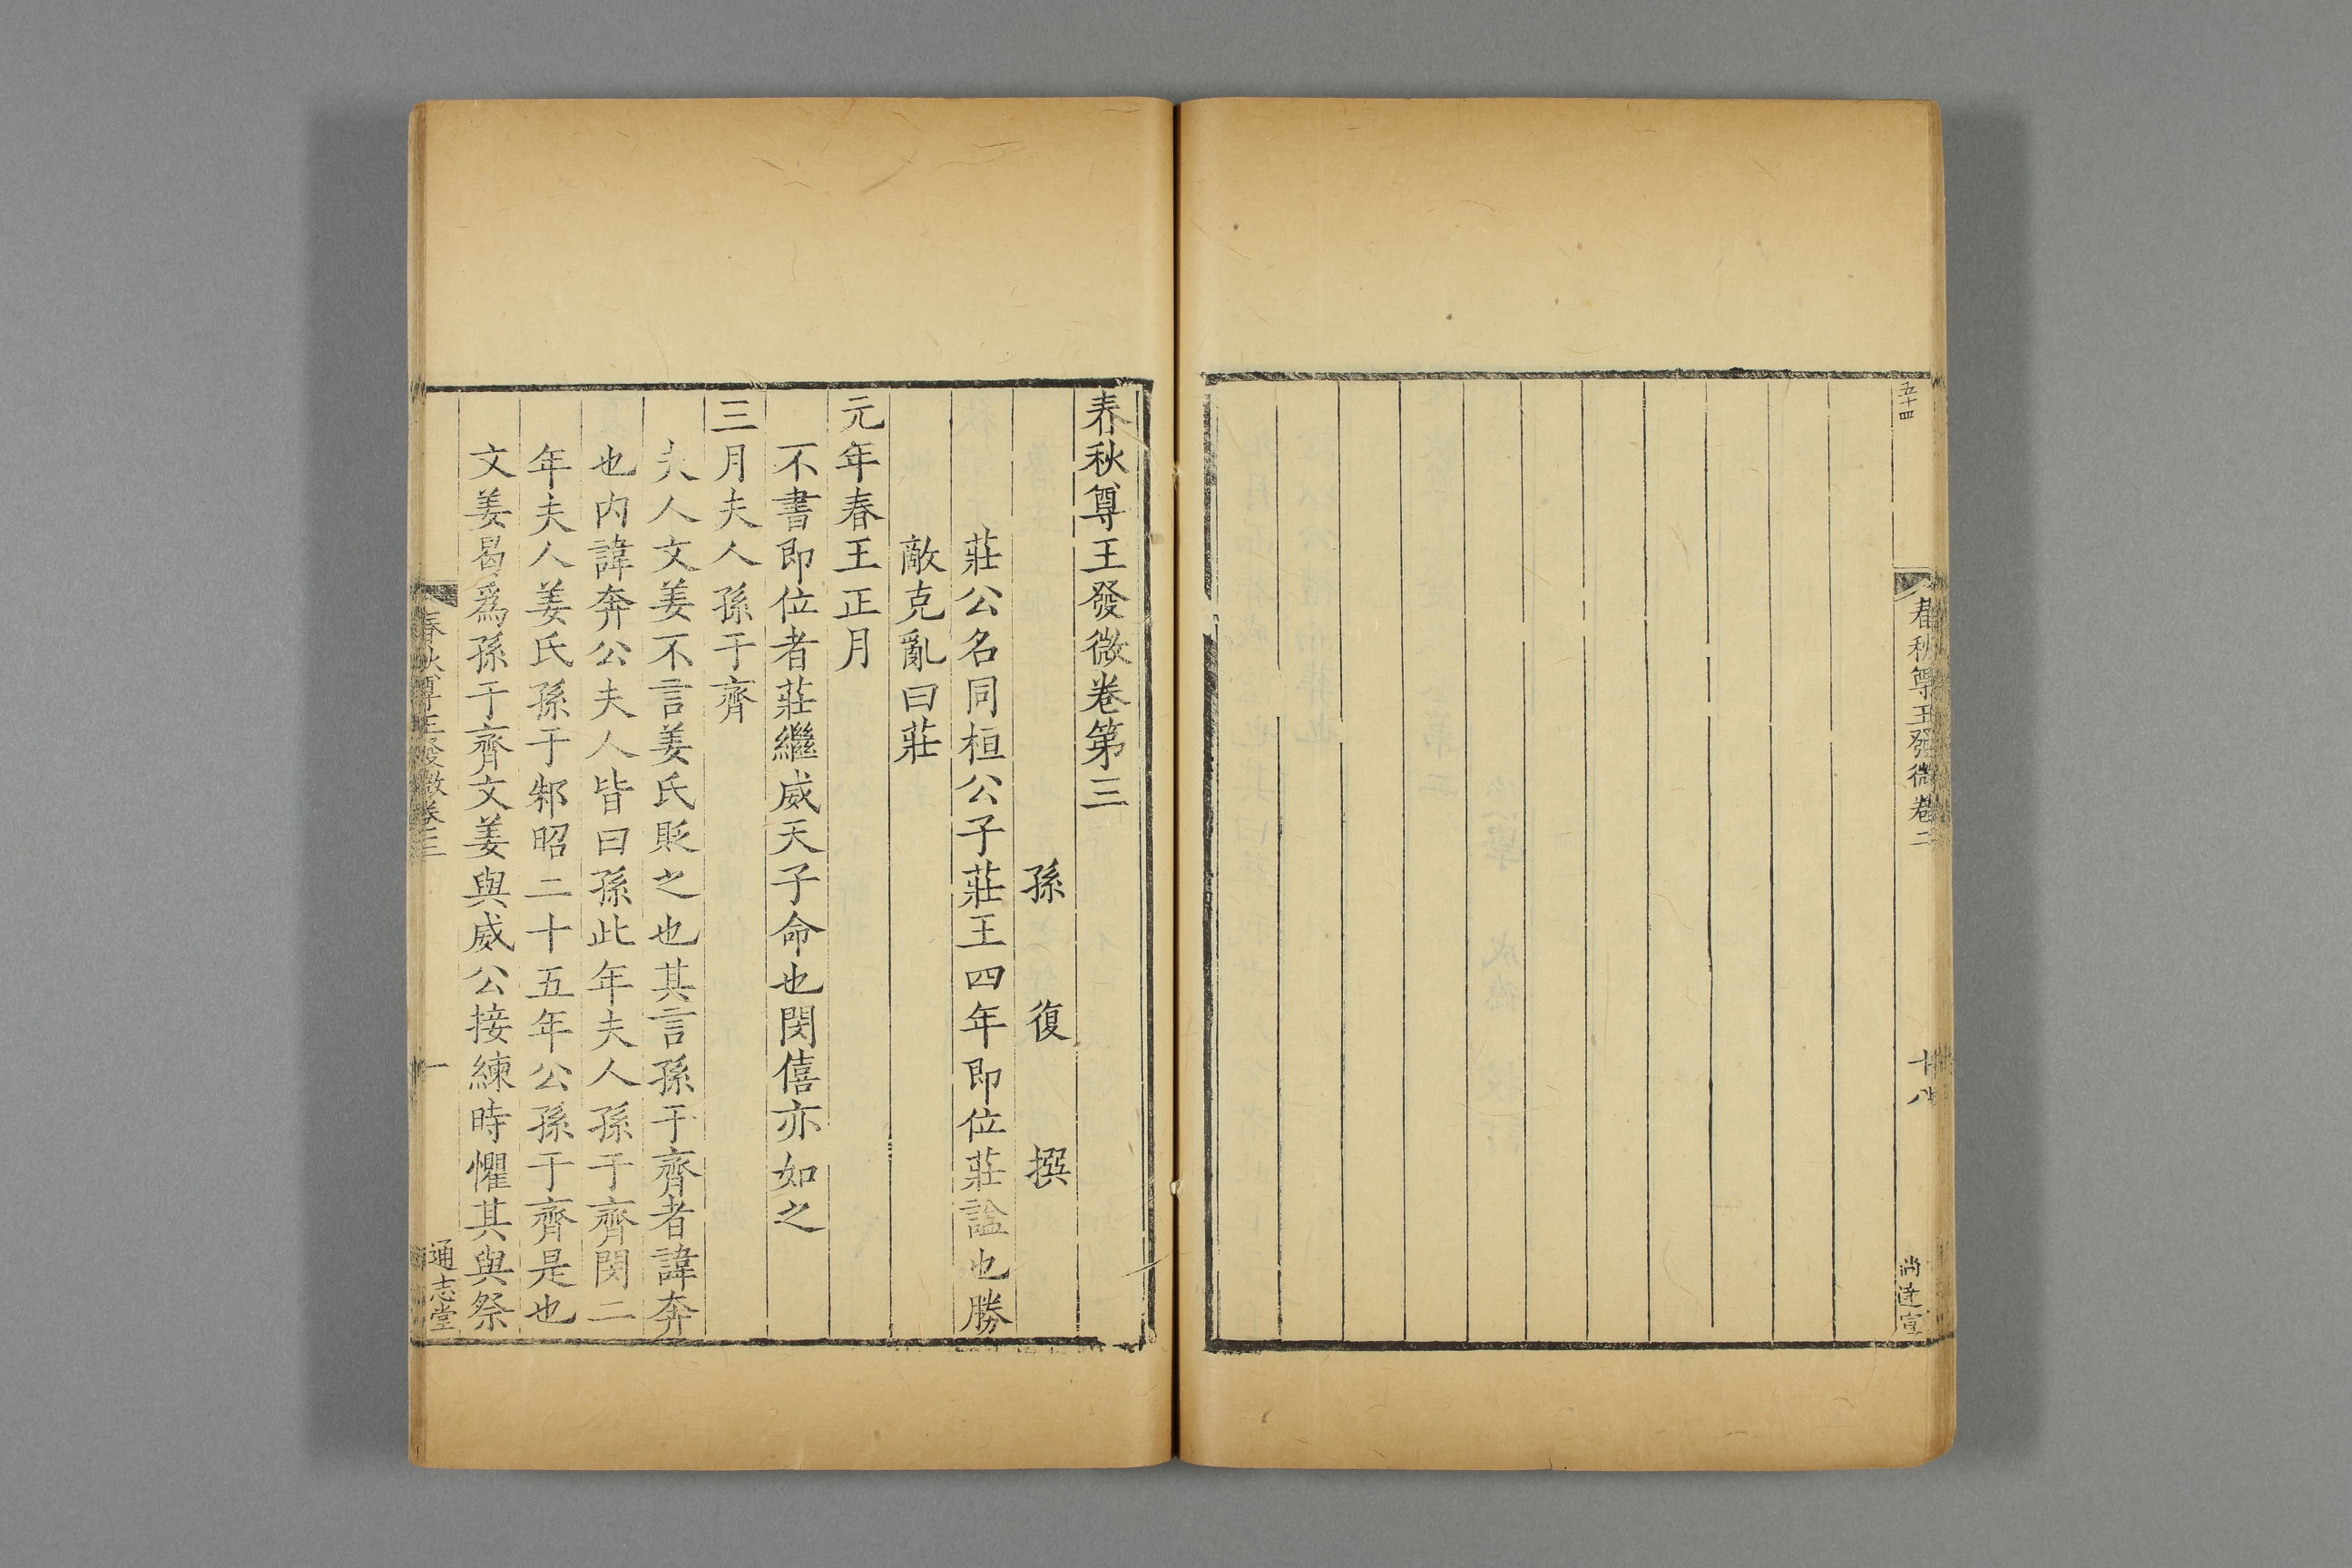 五十四
春秋尊王發微卷二
十八
尚達宣
春秋尊王發微卷第三
孫復撰
莊公名同桓公子莊王四年即位莊謚也勝
敵克亂曰莊
元年春王正月
不書即位者莊繼威天子命也閔僖亦如之
三月夫人孫于齊
夫人文姜不言姜氏貶之也其言孫于齊者諱奔
也内諱奔公夫人皆曰孫此年夫人孫于齊閔二
年夫人姜氏孫于邾昭二十五年公孫于齊是也
文姜曷爲孫于齊文姜與威公接練時懼其與祭
春秋尊王發微卷三
一
通志堂